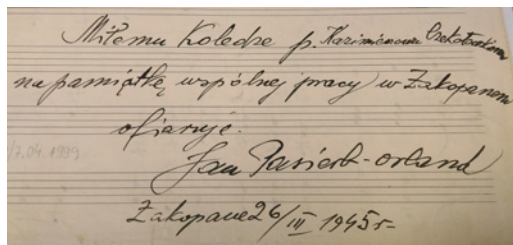 Miłemu Koledze p. Kazimierzowi Czekotowskiemu
na pamiątkę wspólnej pracy w Zakopanem
ofiaruję.
17.04.1999
Jan Pasierb-Orland
Zakopane 26/III 1945 r-